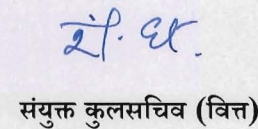 संयुक्त कुलसचिव (वित्त)